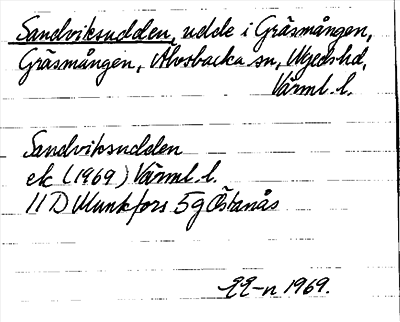 Sandviksudden, udde i Gräsmången,
Gräsmången, Älvsbacka sn, Nyeds hd,
Värml. l.
Sandviksudden
ek (1969) Värml. l.
11 D Munkfors 5g Östanås
1969.